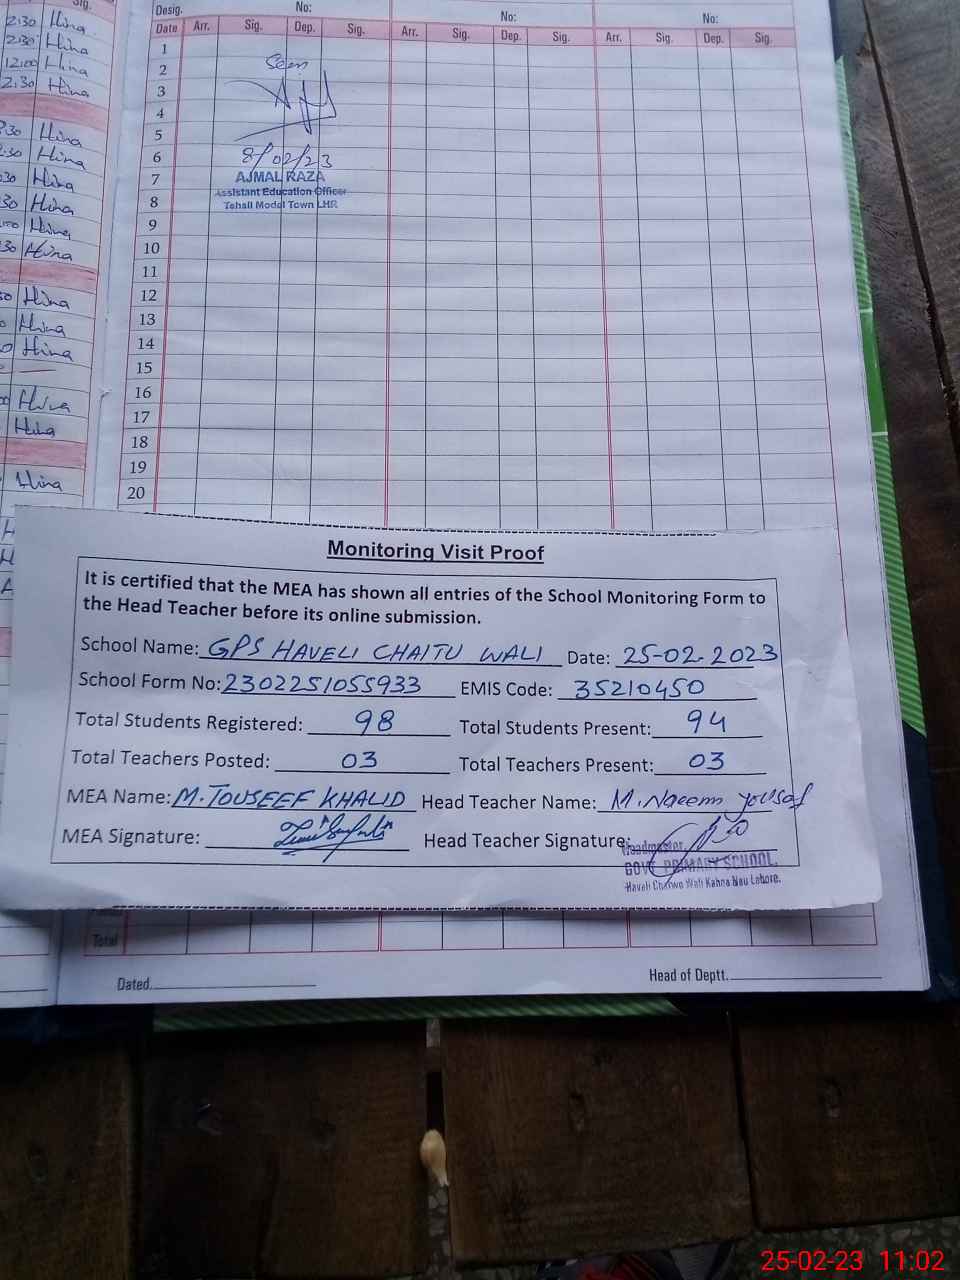 Sig.
2:30 Hina
2:30 Hina
12:00 Hina
2:30 Hina
Hina
Hina
Hina
Hina
Hina
Hina
Hina
Hina
Hina
Hina
Hina
Hina
Desig. No: No: No:
Date Arr. Sig. Dep. Sig. Arr. Sig. Dep. Sig. Arr. Sig. Dep. Sig.
1
2
3
4
5
6
7
8
9
10
11
12
13
14
15
16
17
18
19
20
Seen
8/02/23
AJMAL RAZA
Assistant Education Officer
Tehsil Model Town LHR
Monitoring Visit Proof
It is certified that the MEA has shown all entries of the School Monitoring Form to
the Head Teacher before its online submission.
School Name: GPS HAVELI CHAITU WALI Date: 25-02-2023
School Form No: 2302251055933 EMIS Code: 35210450
Total Students Registered: 98 Total Students Present: 94
Total Teachers Posted: 03 Total Teachers Present: 03
MEA Name: M. TOUSEEF KHALID Head Teacher Name: M. Naeem yousaf
MEA Signature: Head Teacher Signature:
Headmaster
GOVT. PRIMARY SCHOOL,
Haveli Chatwo Wali Kahna Nau Lahore.
Total
Dated. Head of Deptt.
25-02-23 11:02